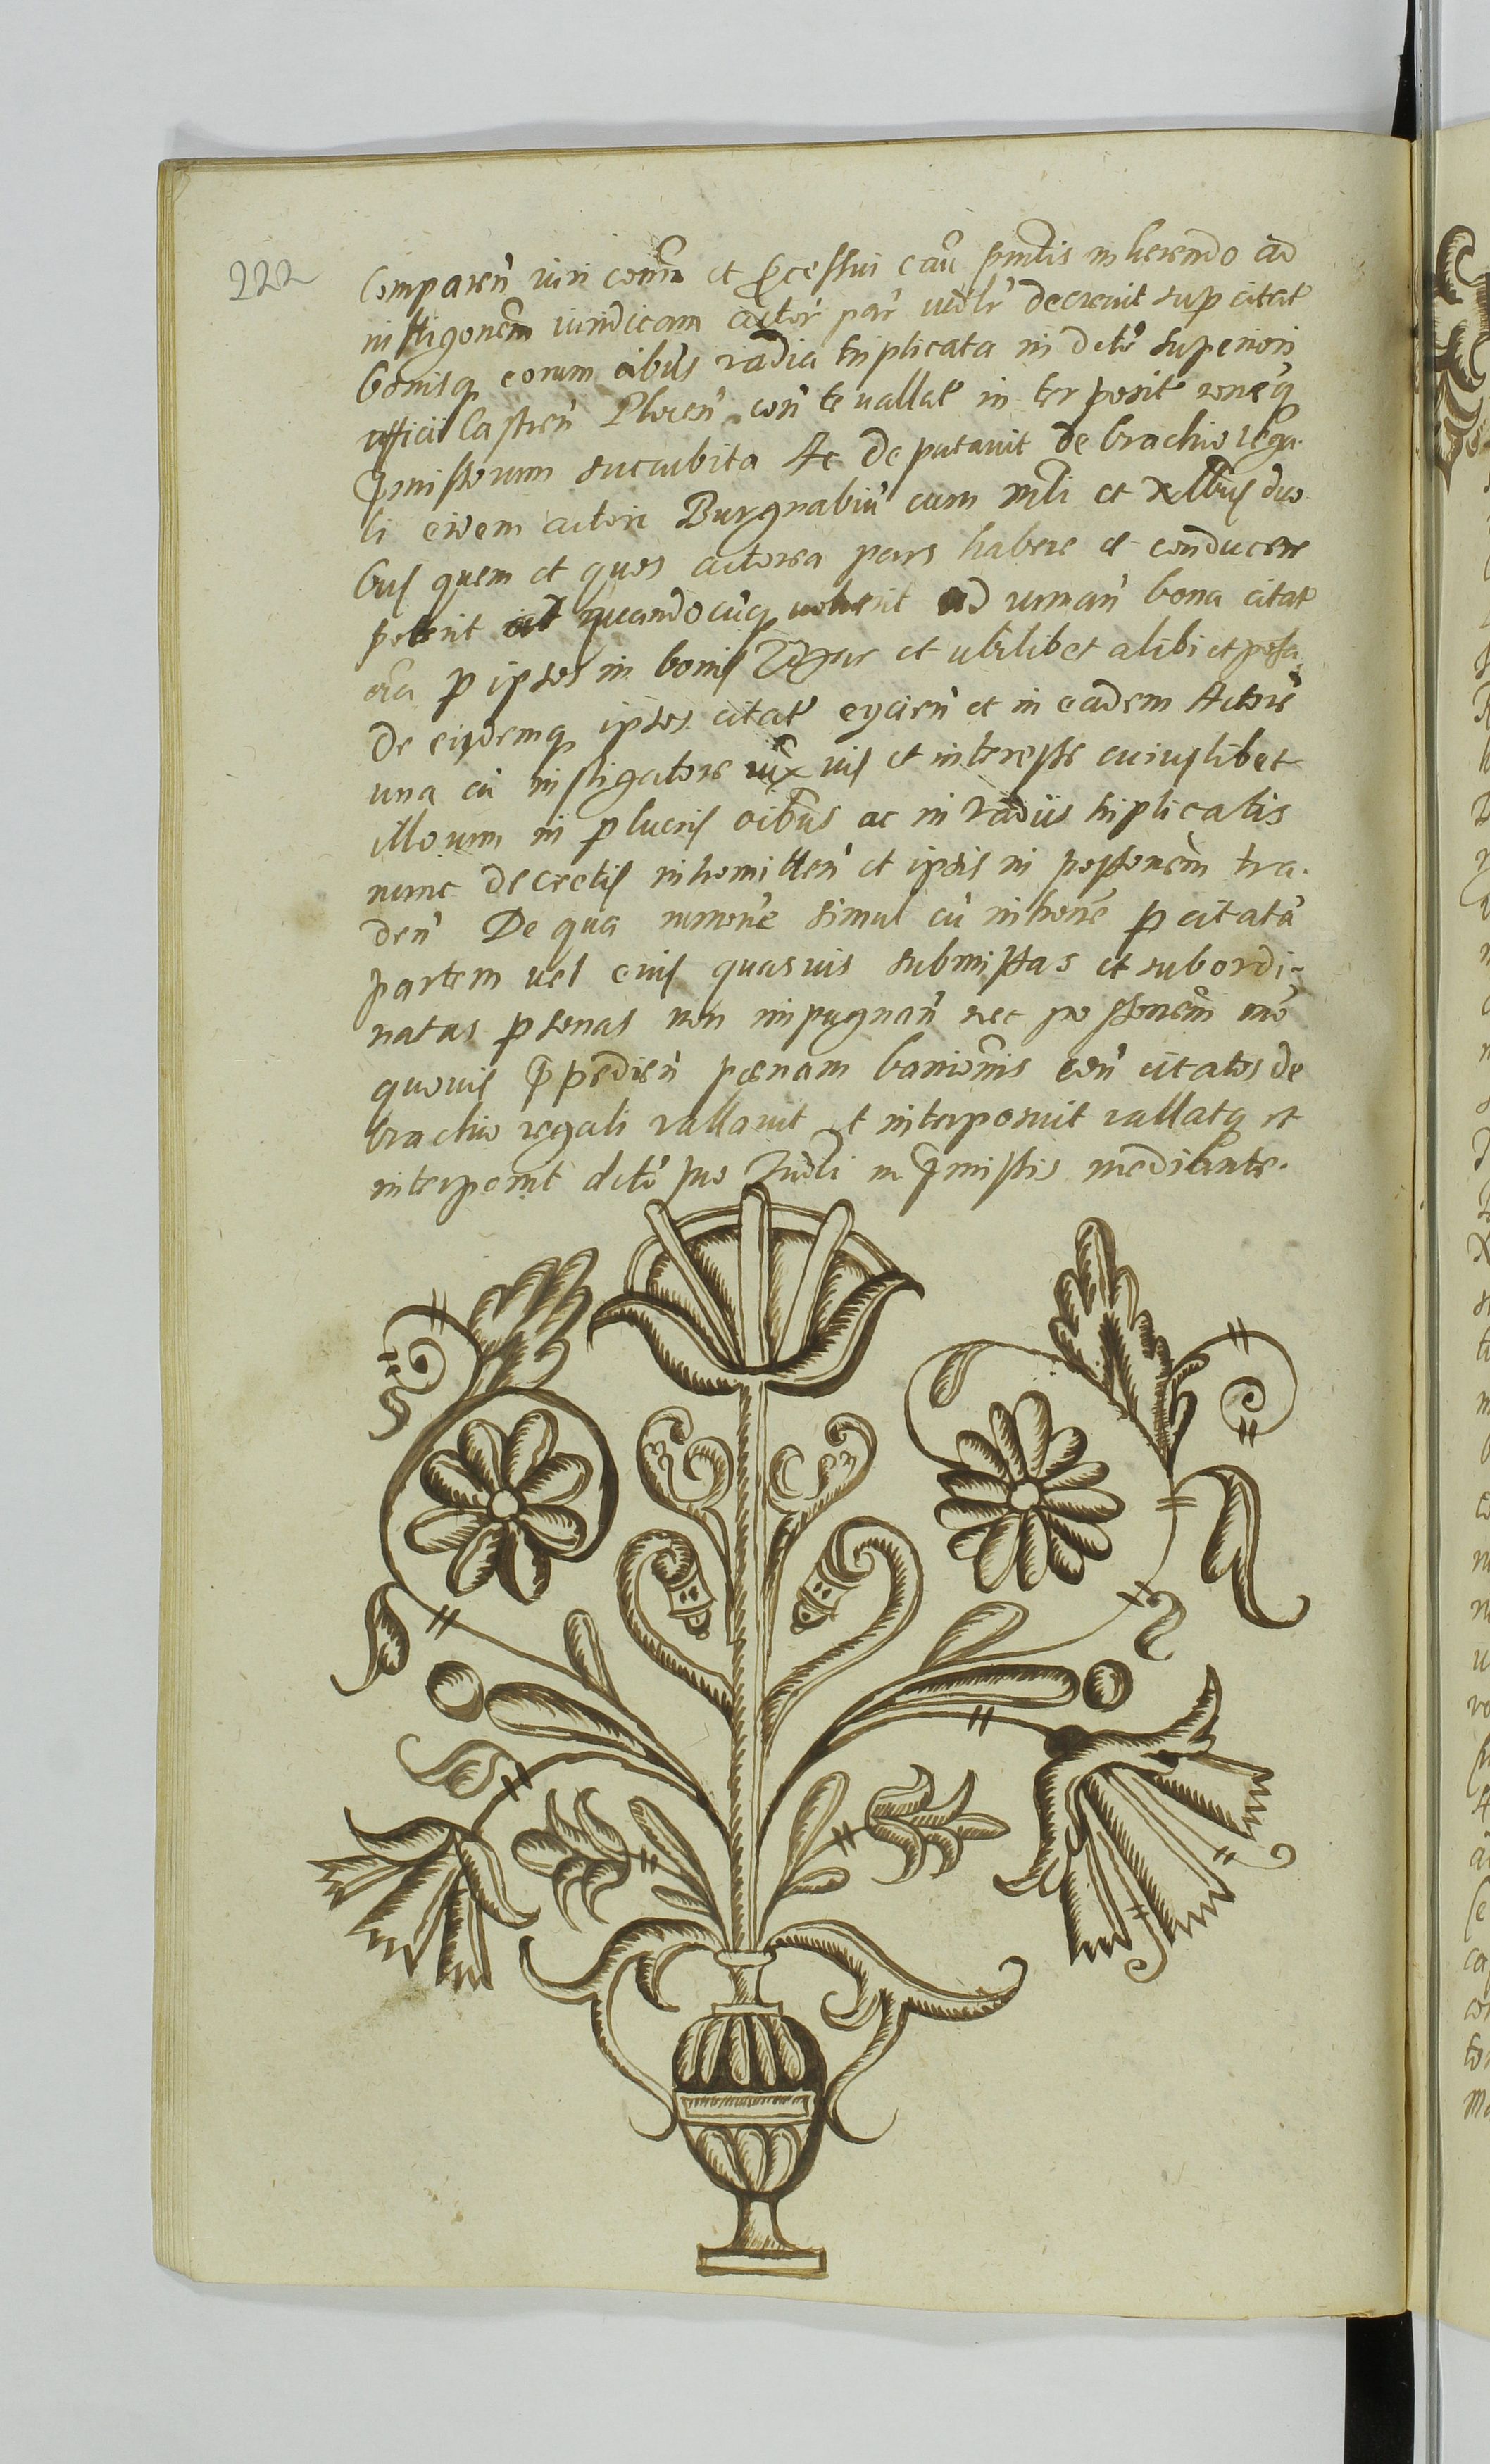 222
Comparen iuri et pcessui cau pmtis inherendo ad
instigonem iuridicam actor par decrevit sup citat
bonisq eorum oibus vadia triplicata in dcto superiori
officii Castren Plocen con te vallat in terposit
pmissorum succubita Ac deputavit de brachio rega.
li eidem actori Burgrabiu cum mli et nllbus duo
bus quem et quos actorea pars habere et conducere
poterit et quandocuq voluerit ad bona citat
oia p ipsos in bonis et ubilibet alibi et possa
de eisdemq ipsos citat eycien et in eadem Actore
una cu instigatore vix vis et interesse cuiuslibet
illorum in p lucris oibus ac in vadiis triplicatis
nunc decretis intromitten et ipsis in possonem tra.
den De qua simul cu p citata
partem vel eius quasvis submissas et subordi-
natas psonas non impugnan nec possonem
quovis ppedien poenam bannionis con citatos de
brachio regali vallavit et interposuit vallatq et
interponit dcto suo in pmissis mediante.